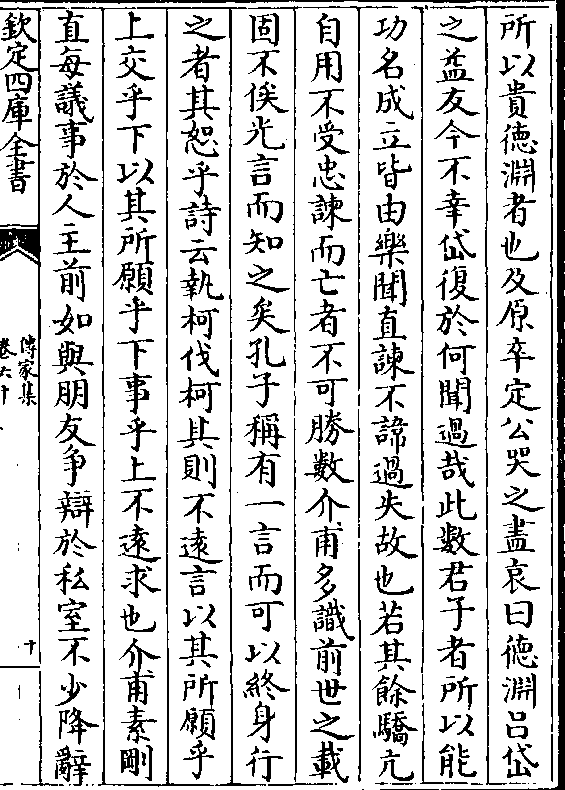 所以貴德淵者也及原卒定公哭之盡哀曰德淵呂岱
之益友今不幸岱復於何聞過哉此數君子者所以能
功名成立皆由樂聞直諫不諱過失故也若其餘驕亢
自用不受忠諫而亡者不可勝數介甫多識前世之載
固不俟光言而知之矣孔子稱有一言而可以終身行
之者其恕乎詩云執柯伐柯其則不遠言以其所願乎
上交乎下以其所願乎下事乎上不遠求也介甫素剛
直每議事於人主前如與朋友争辯於私室不少降辭
欽定四庫全書
傳家集
卷六十
十